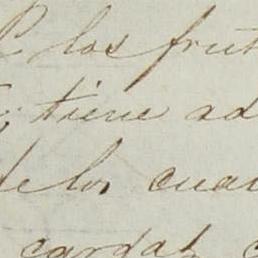 los frut
tiene ad
de los cua
cardas